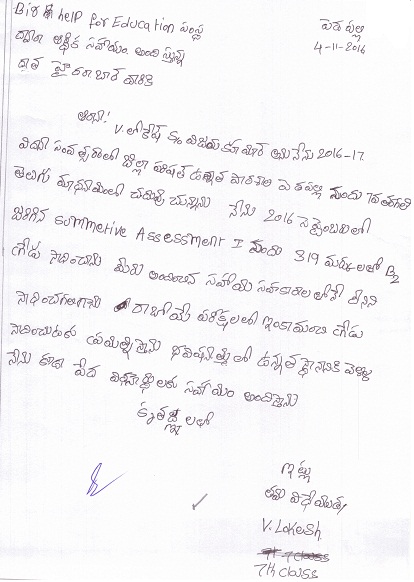 Big help for Education సంస్థ
ద్వారా ఆర్థిక సహాయం అంది స్తున్న
దాత హైదరాబాద్ వారికి
పెరపల్లి
4-11-2016
అయ్యా!
V. లోకేష్ S/o విజయ కుమార్ అను నేను 2016-17
విద్యా సంవత్సరంలో జిల్లా పరిషత్ ఉన్నత పాఠశాల పెరపల్లి నందు 7వ తరగతి
తెలుగు మాధ్యమంలో చదువు చున్నాను నేను 2016 సెప్టెంబరులో
జరిగిన Summetive Assessment I నందు 319 మార్కులతో B2
గ్రేడు సాధించాను మీరు అందించిన సహాయ సహకారాలతోనే దీనిని
సాధించగలిగాను రాబోయే పరీక్షలలో ఇంకా మంచి గ్రేడు
సాధించుటకు ప్రయత్నిస్తాను భవిష్యత్తులో ఉన్నత స్థానానికి వెళ్లి
నేను కూడా పేద విద్యార్థులకు సహాయం అందిస్తాను
కృతజ్ఞతలతో
ఇట్లు
తమ విధేయుడు
V. Lokesh
7th class